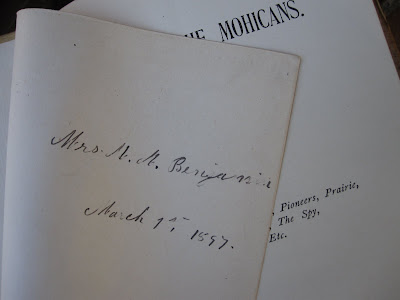 HE MOHICANS.
Mrs. M. M. Benjamin
March 1st, 1897.
, Pioneers, Prairie,
, The Spy,
Etc.